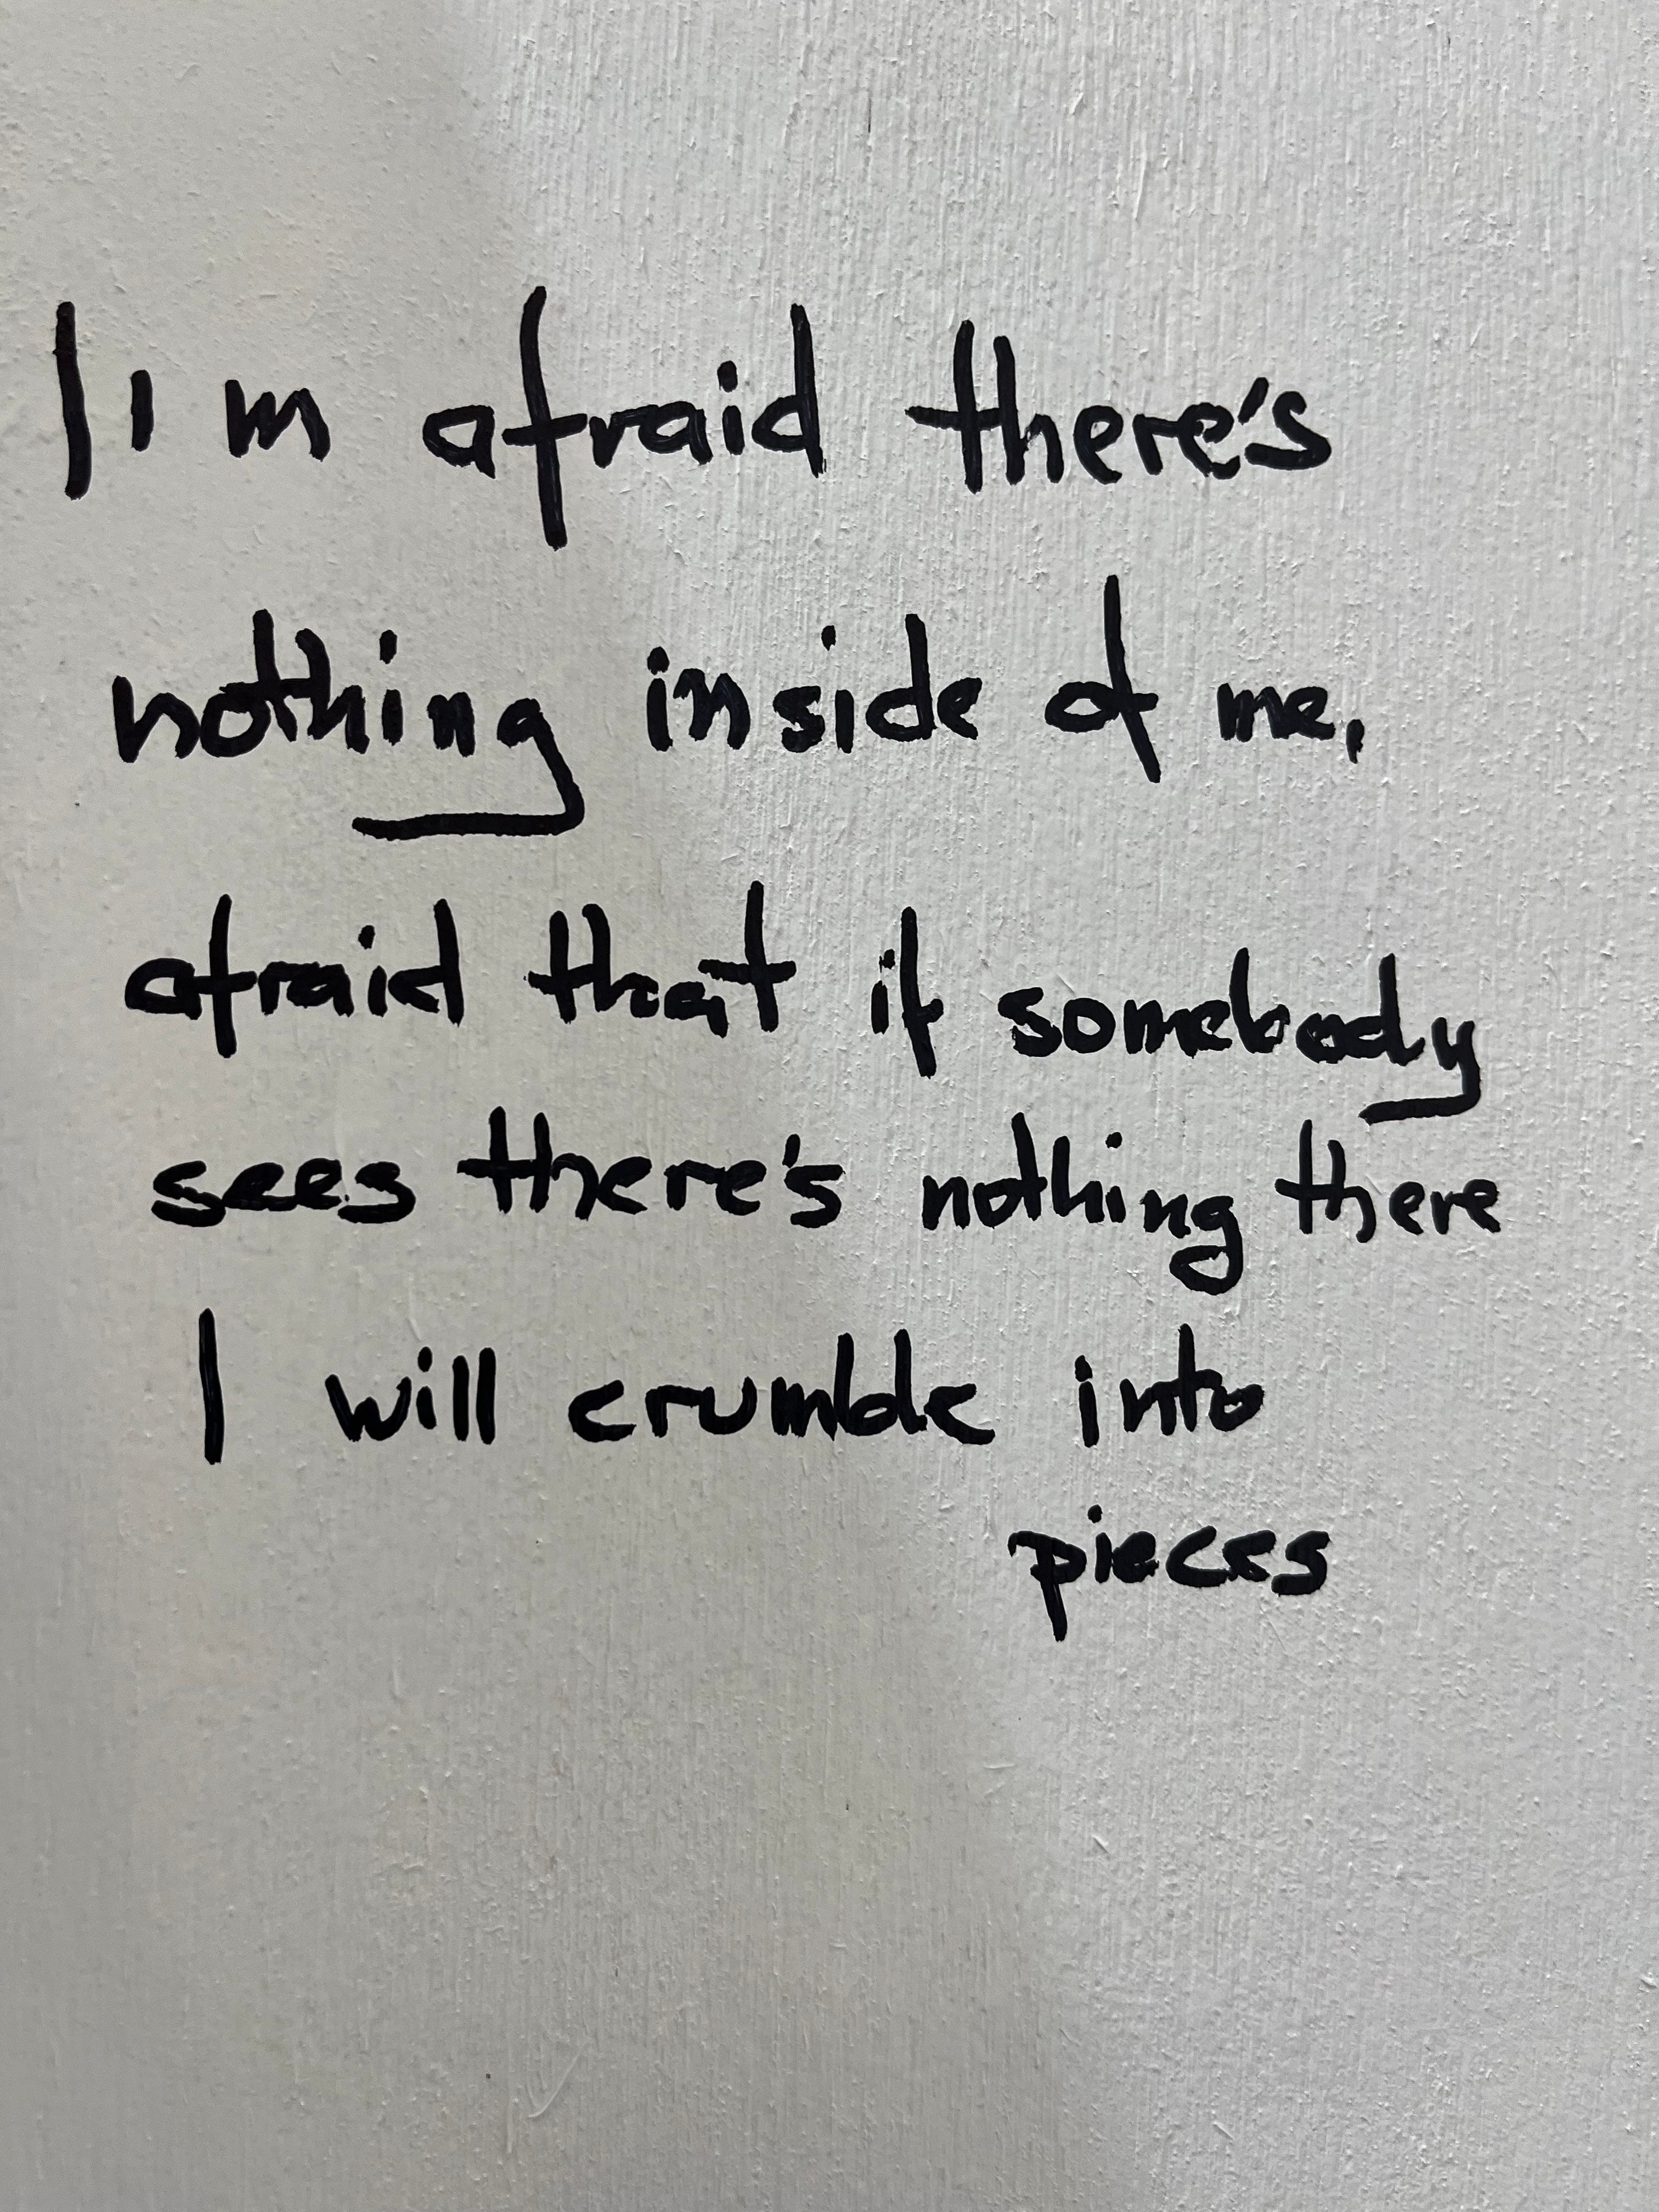 I'm afraid there's
nothing inside of me,
afraid that if somebody
sees there's nothing there
I will crumble into
pieces